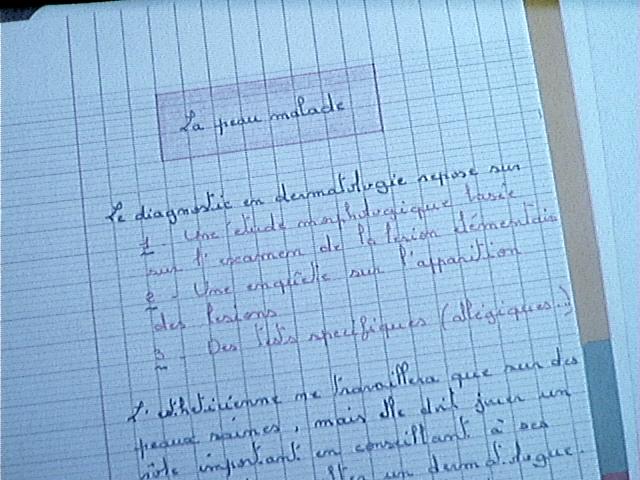 La peau malade
Le diagnostic en dermatologie repose sur
1 - Une étude morphologique basée
sur l'examen de la lésion élémentaire
2 - Une enquête sur l'apparition
des lésions
3 - Des tests spécifiques (allégiques..)
L'esthéticienne ne travaillera que sur des
peaux saines, mais elle doit jouer un
rôle important en conseillant à ses
un dermatologue.